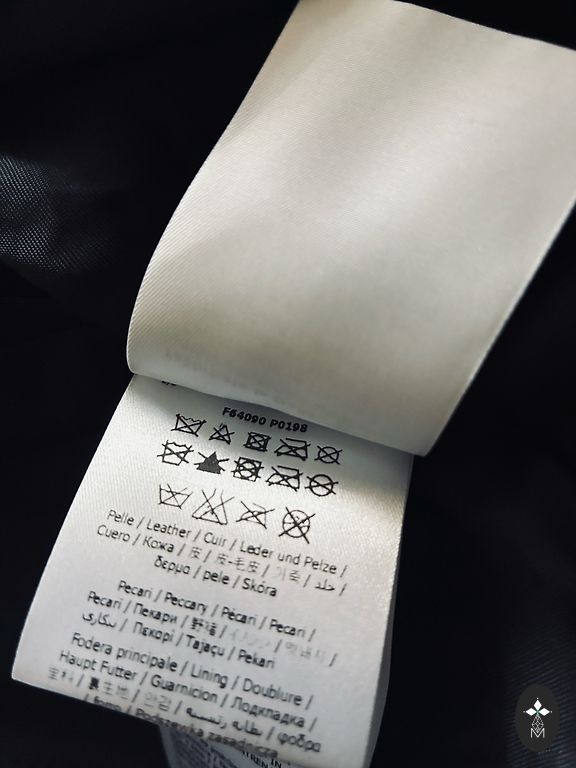 F64090 P0198
Pelle / Leather / Cuir / Leder und Pelze /
Cuero / Кожа / 皮 / 皮-毛皮 / 가죽 / جلد /
δερμα / pele / Skóra
Pecari / Peccary / Pécari / Pecari /
Pecarí / Пекари / 野猪 / /
بيكاري / Πεκαρί / Tajaçu / Pekari
Fodera principale / Lining / Doublure /
Haupt Futter / Guarnicion / Подкладка /
里料 / 裏生地 / 안감 / بطانة رئيسية / φοδρα
/ forro / Podszewka zasadnicza